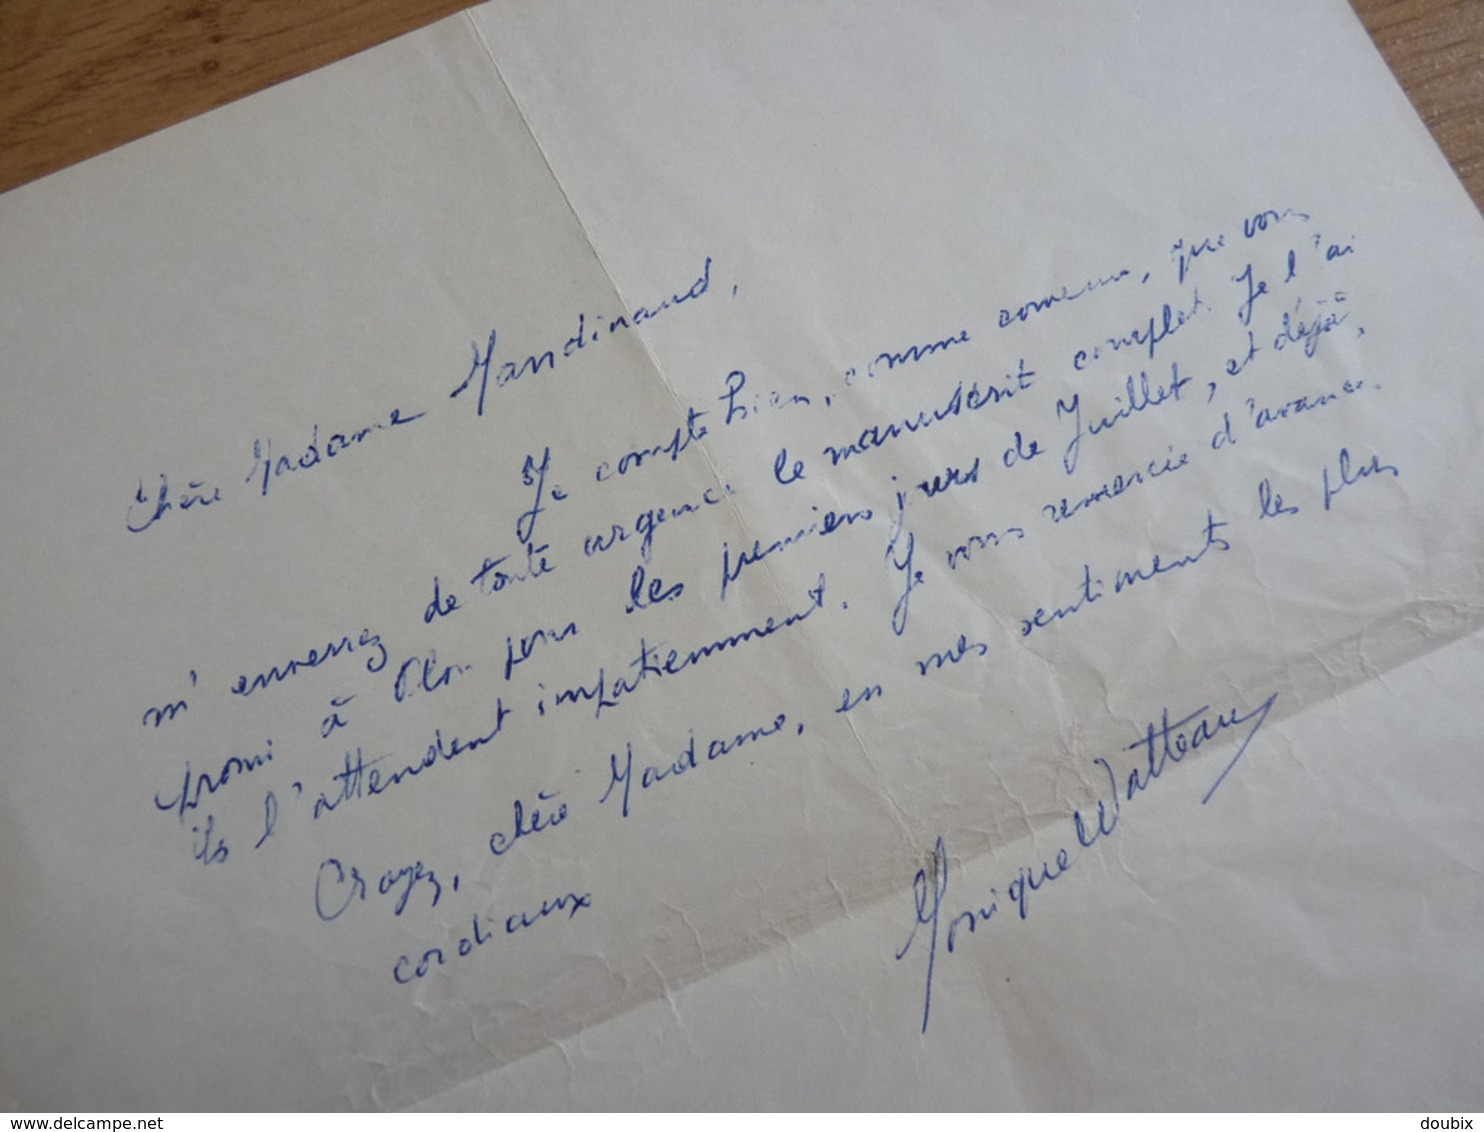 Chère Madame Mandinaud,
Je compte bien, comme convenu, que vous
m'enverrez de toute urgence le manuscrit complet. Je l'ai
promi à Plon pour les premiers jours de Juillet, et déjà,
ils l'attendent impatiemment. Je vous remercie d'avance.
Croyez, chère Madame, en mes sentiments les plus
cordiaux
Monique Watteau
www.delcampe.net
doubix